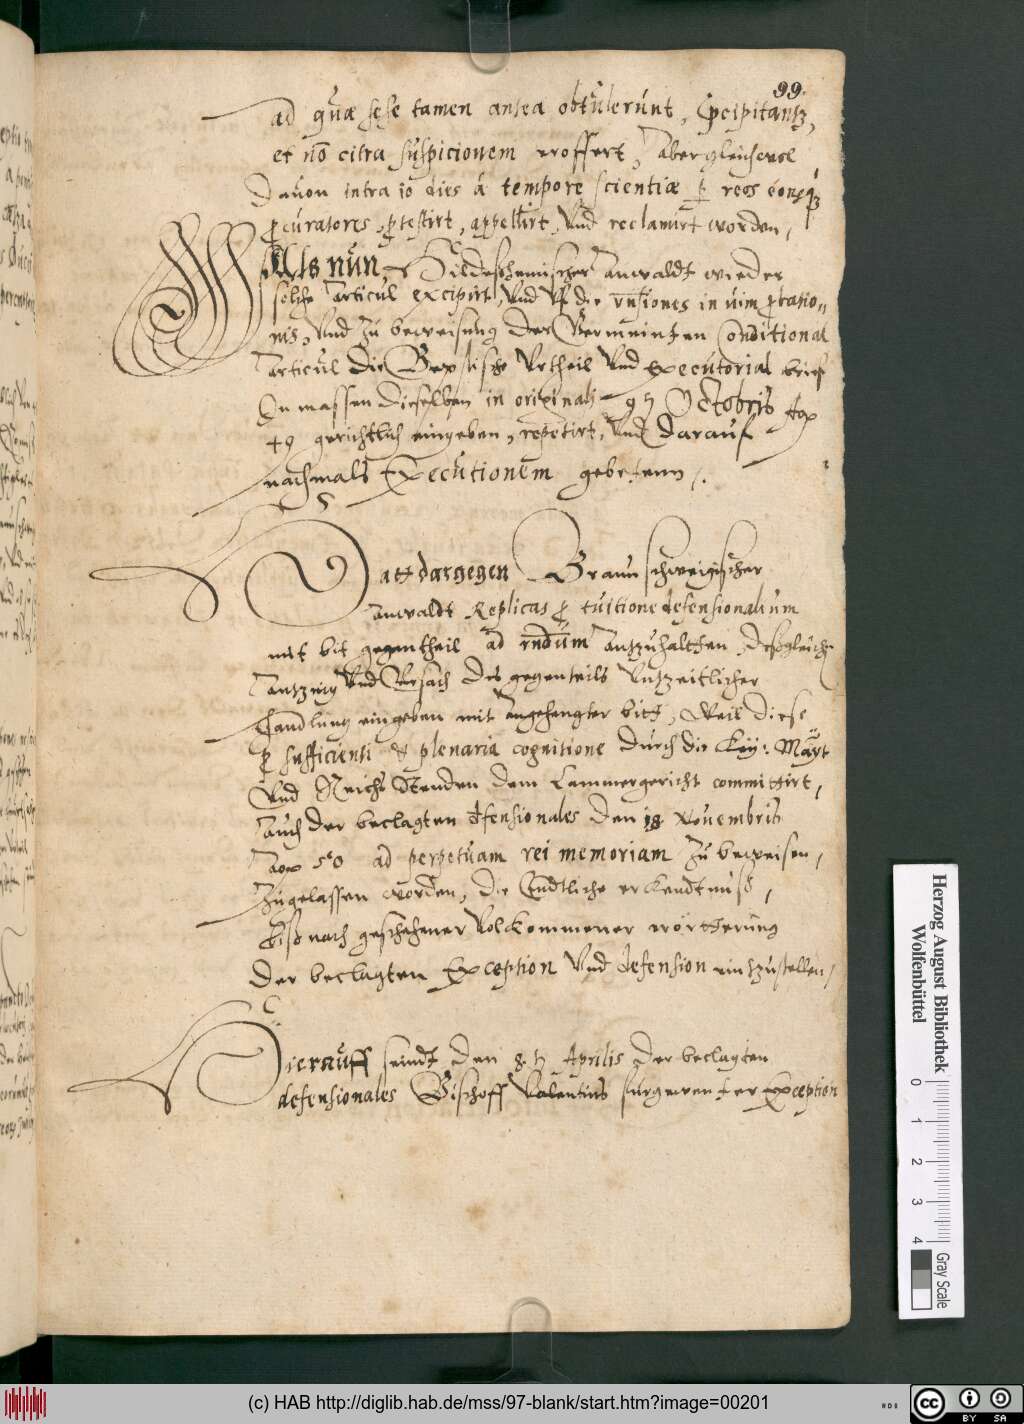 99.
ad quæ sese tamen antea obtulerunt, Precipitantz,
et nō citra suspicionem eroffert, Aber gleichwol
Dauon intra 10 dies á tempore scientiæ reos
procuratores, protestirt, appellirt, Vnd reclamirt worden,
Als nun, Hildesheimischer Anwaldt wieder
solche Articul excipirt, Vnd Vf die in uim probatio„
nis, Vnd Zu beweisung der Vermeinten Conditional
Articul die Bepstische Vrtheil Vnd Executorial brief
In massen dieselben in originali Octobris
49 gerichtlich eingeben, repetirt, Vnd darauf
nachmals Executionem gebetenn,
Hatt dargegen Braunschweigischer
Anwaldt Replicas tuitione defensionalium
mit bit gegentheil ad rndūm Antzuhaltten, Desgleichen
Antzeig Vnd Vrsach des gegenteils Vntzeitlicher
Handlung eingeben mit Angehengter bitt, Weil diese
sufficienti & plenaria cognitione durch die Key: Mayt
Vnd Reichs Stenden dem Cammergericht committirt,
Auch der beclagten defensionales den 18 Nouembris
50 ad perpetuam rei memoriam Zu beweisen,
Zugelassen worden, die Endtliche erkendtnuß,
Biß nach geschehener Volkommener erörtterung
der beclagten Exception Vnd defension eintzustellen,
Hierauff seindt den 8 Aprilis der beclagten
defensionales Bischoff Valentins furgewenter Exception
Herzog August Bibliothek
Wolfenbüttel
0 1 2 3 4
Gray Scale
(c) HAB http://diglib.hab.de/mss/97-blank/start.htm?image=00201
cc BY SA